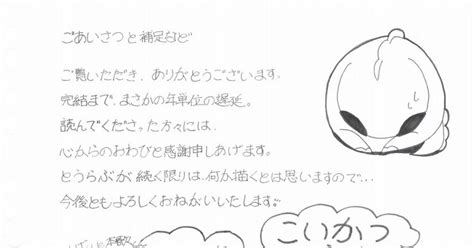 ごあいさつと補足など
ご覧いただき、ありがとうございます。
完結まで、まさかの年単位の遅延。
読んでくださった方々には、
心からのおわびと感謝申しあげます。
とうらぶが続く限りは、何か描くとは思いますので…
今後ともよろしくおねがいいたします。
こいかつ